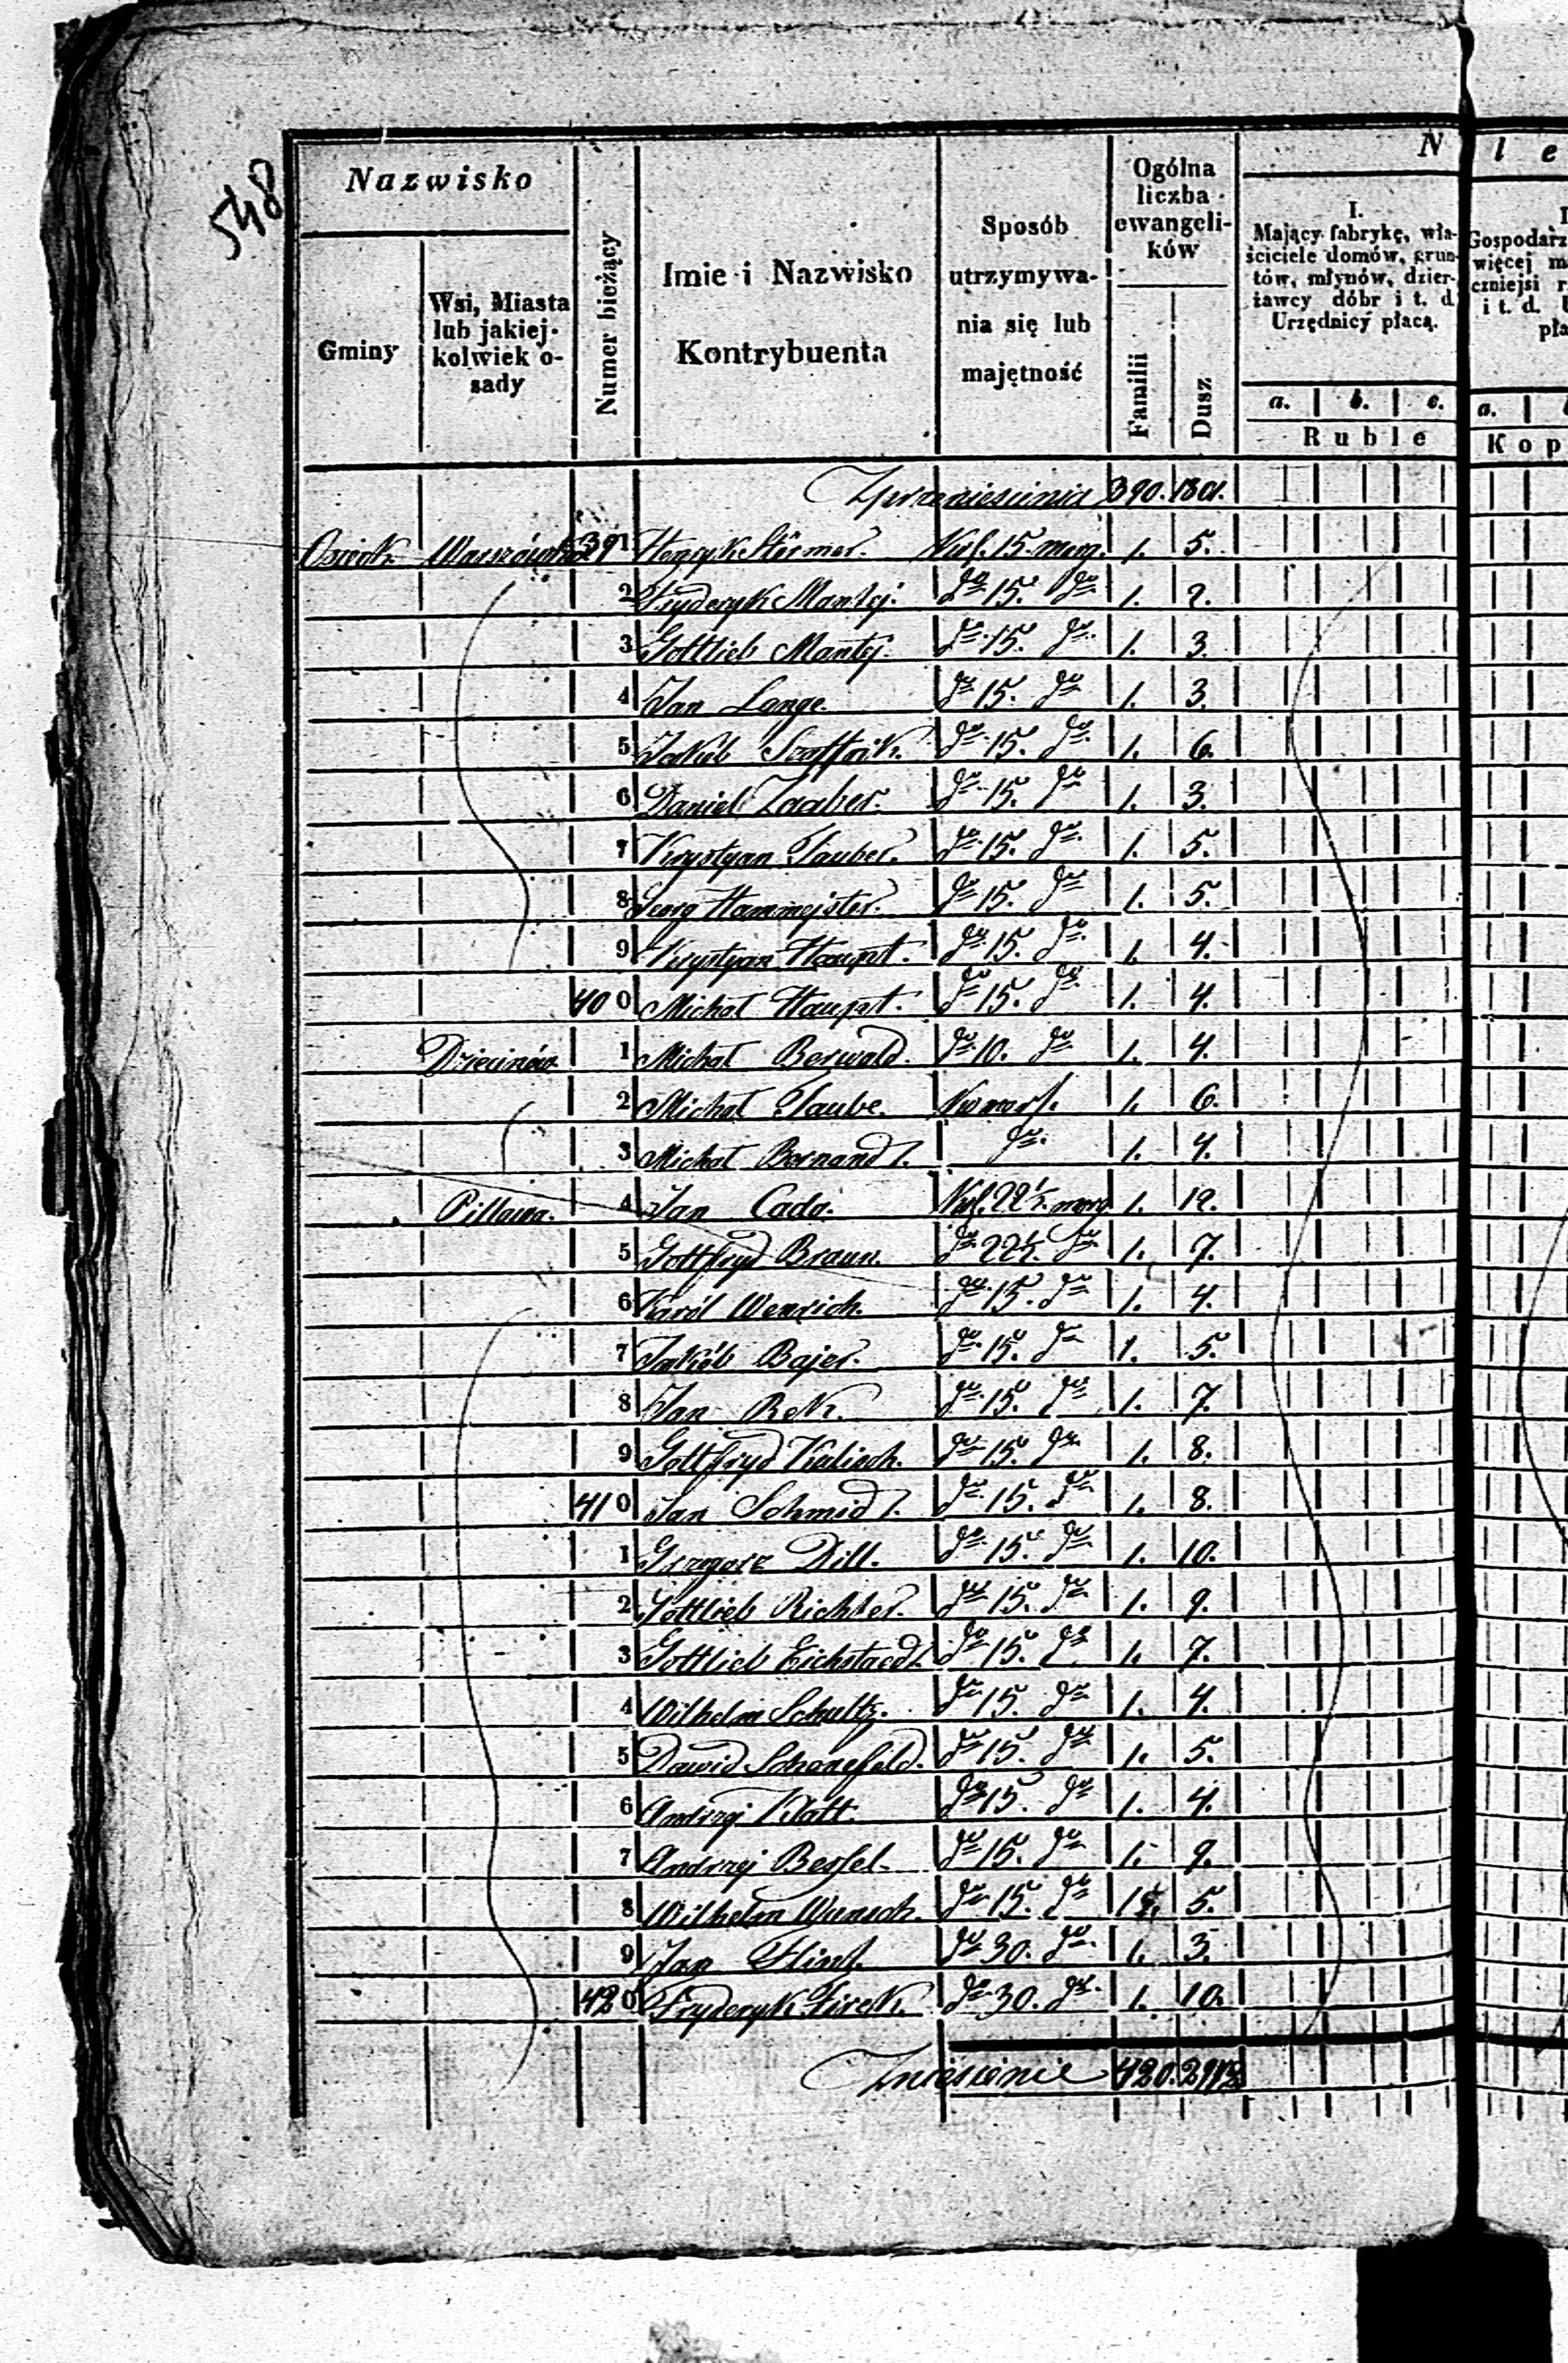 548
Nazwisko
Gminy
Wsi, Miasta lub jakiej-kolwiek o-sady
Numer bieżący
Imie i Nazwisko Kontrybuenta
Sposób utrzymywa-nia się lub majętność
Ogólna liczba ewangeli-ków
Familii
Dusz
N l e
I. Mający fabrykę, wła-ściciele domów, grun-tów, młynów, dzier-żawcy dóbr i t. d. Urzędnicy płacą.
Gospodarz więcej m czniejsi r i t. d. pła
a. b. c. a.
Ruble Kop
Z przeniesienia 390.
Osieck Warszówka 391 Henryk Stürmer. 15. morg. 1. 5.
2 Fryderyk Mantej. do 15. do 1. 2.
3 Gottlieb Mantej. do 15. do 1. 3.
4 Jan Lange. do 15. do 1. 3.
5 Jakób do 15. do 1. 6.
6 Daniel do 15. do 1. 3.
7 Krystyan Tauber. do 15. do 1. 5.
8 Georg Hanmejster. do 15. do 1. 5.
9 Krystyan Haupt. do 15. do 1. 4.
400 Michał Haupt. do 15. do 1. 4.
Dziecinów 1 Michał Berwald. do 10. do 1. 4.
2 Michał Taube. 1. 6.
3 Michał Bornandt. do 1. 4.
Pillawa. 4 Jan Cado. 22½ morg 1. 12.
5 Gottfryd Braun. do 22½. do 1. 7.
6 Karól Wenrich. do 15. do 1. 4.
7 Jakób Bajer. do 15. do 1. 5.
8 Jan Rek. do 15. do 1. 7.
9 Gottfryd Kalisch. do 15. do 1. 8.
410 Jan Schmidt. do 15. do 1. 8.
1 Grzegorz Dill. do 15. do 1. 10.
2 Gottlieb Richter. do 15. do 1. 9.
3 Gottlieb Eichstaedt. do 15. do 1. 7.
4 Wilhelm Schultz. do 15. do 1. 4.
5 Dawid Schonefeld. do 15. do 1. 5.
6 Andrzej Klatt. do 15. do 1. 4.
7 Andrzej Bessel. do 15. do 1. 9.
8 Wilhelm Wunsch. do 15. do 1. 5.
9 Jan Flint. do 30. do 1. 3.
420 Fryderyk Firek. do 30. do 1. 10.
Zniesienie 420.